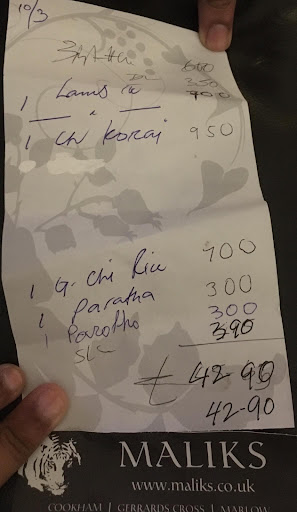 10/3
600
350
1 Lamb 900
1 Ch Korai 950
1 G. Chi Rice 400
1 Paratha 300
1 Parotha 300
S/C 390
£ 42-90
42-90
MALIKS
www.maliks.co.uk
COOKHAM | GERRARDS CROSS | MARLOW